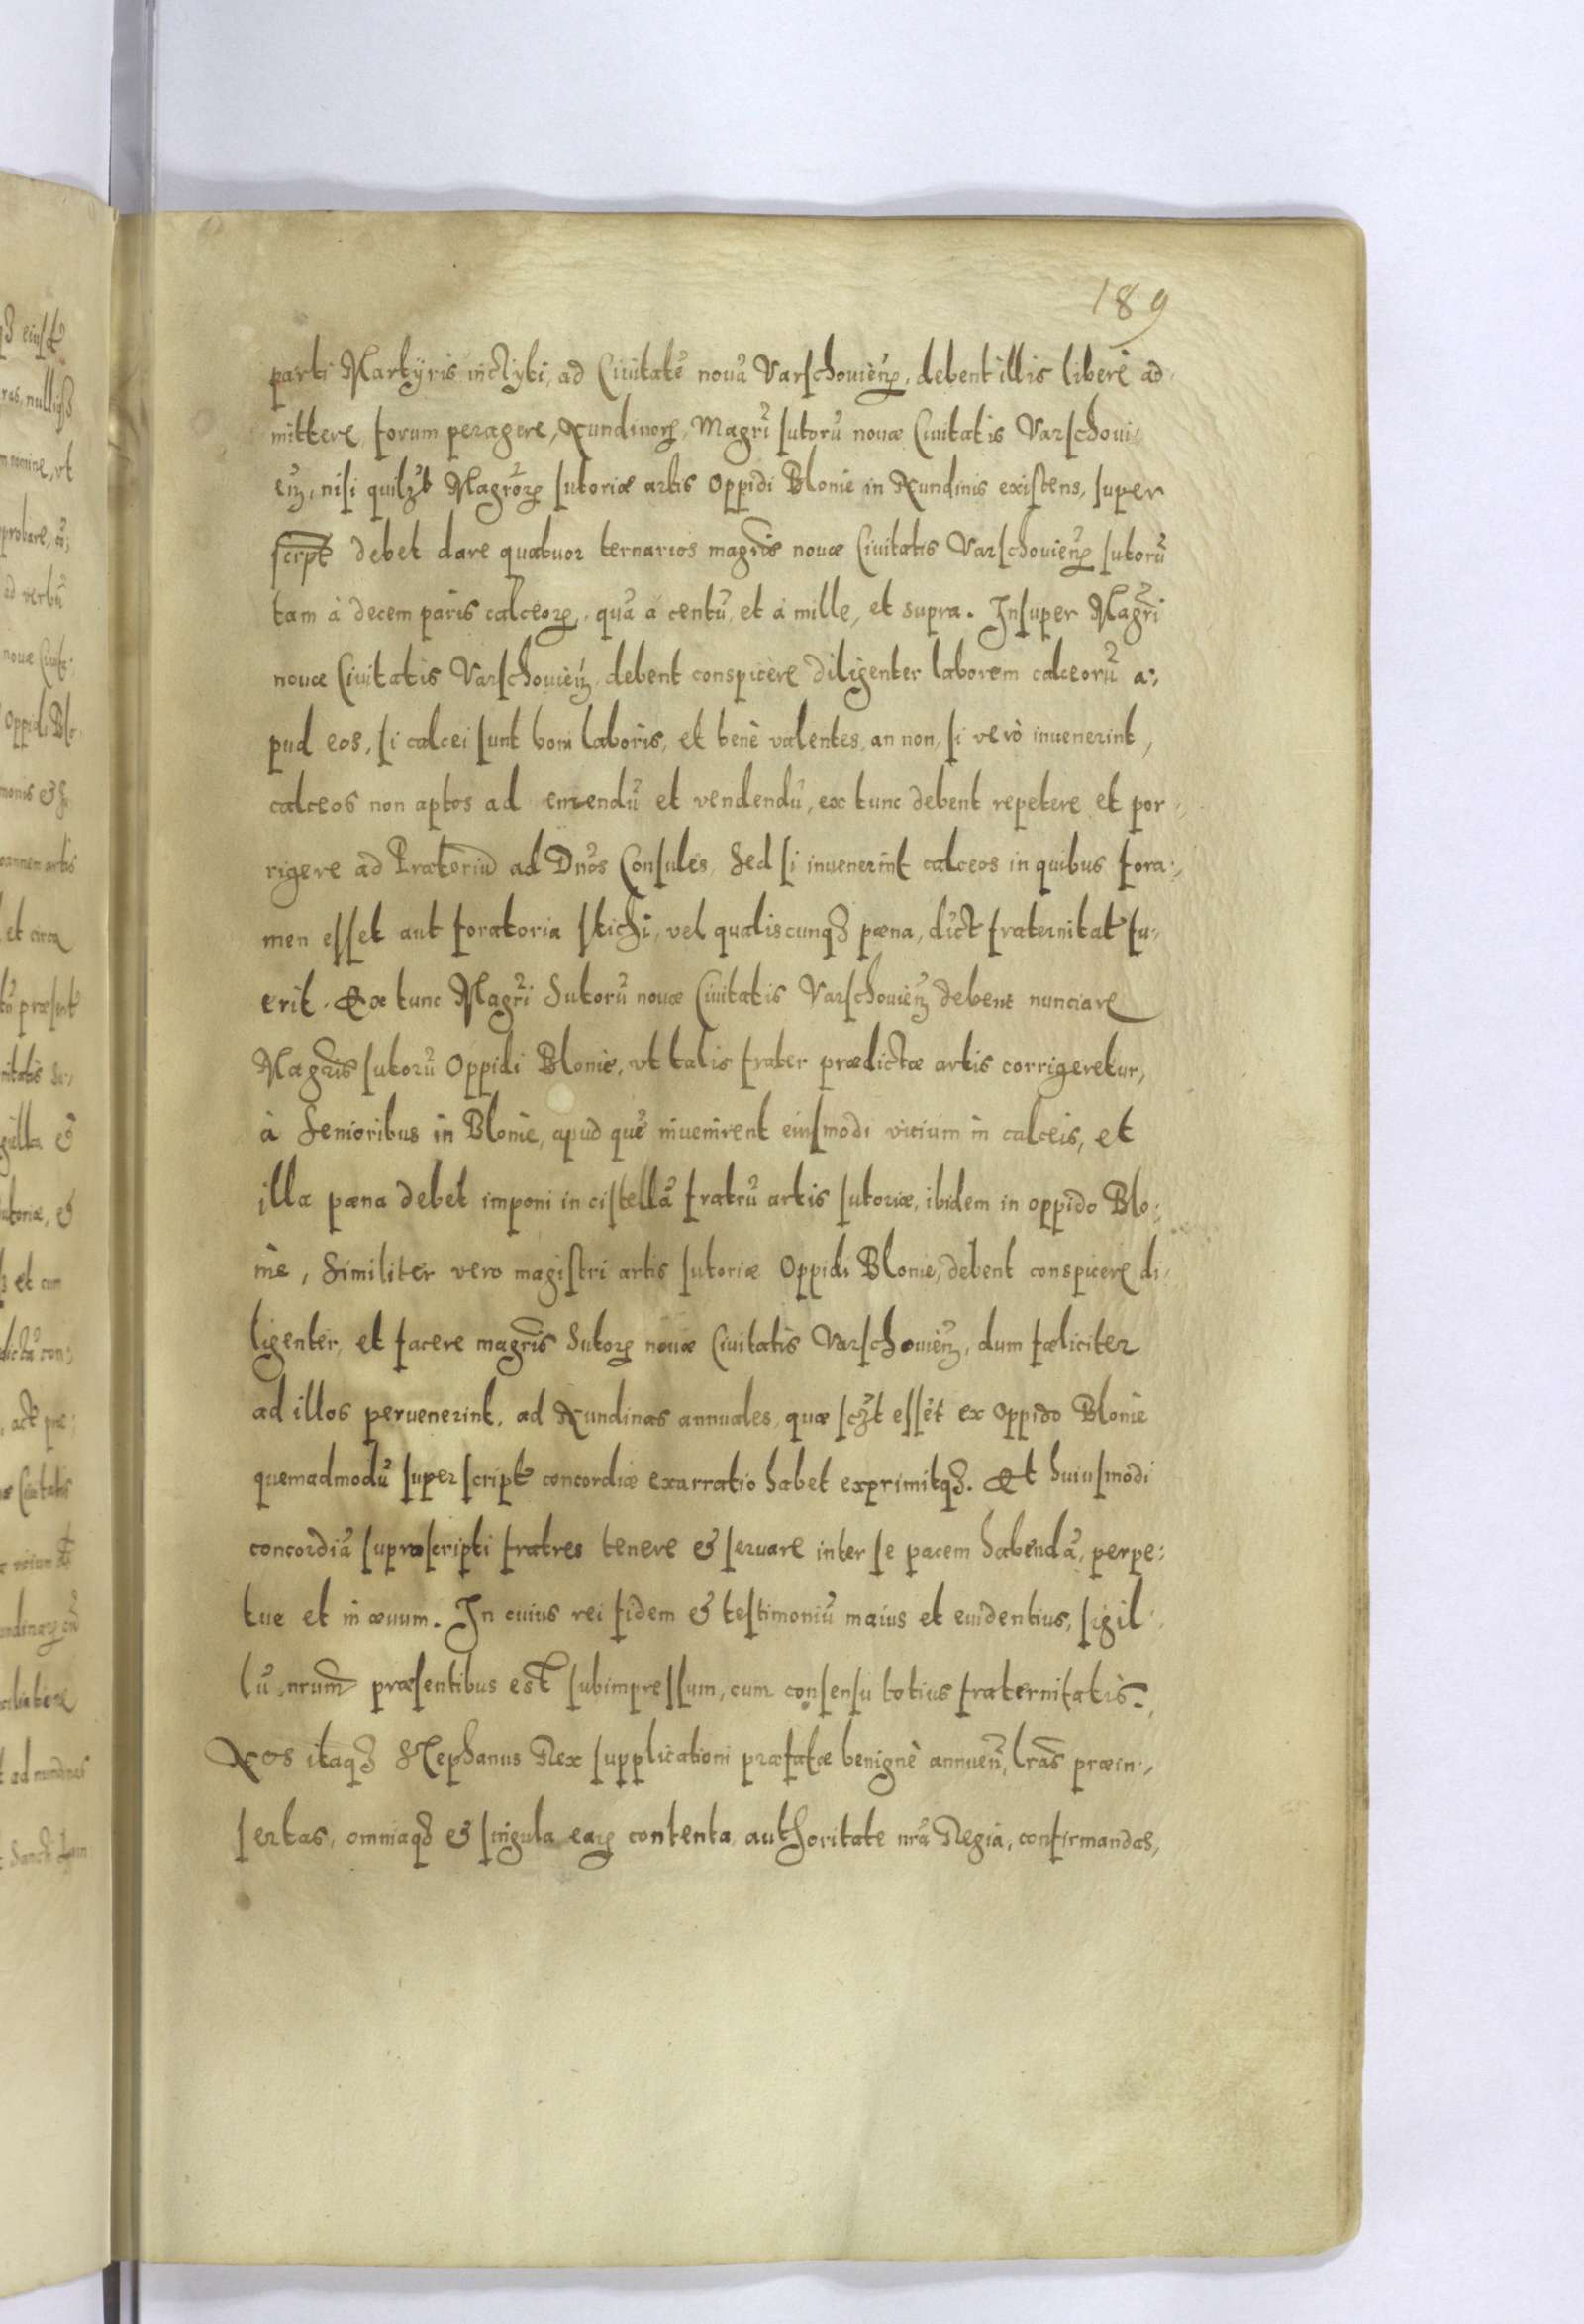 189
parti Martÿris inclyti, ad Ciuitatẽ nouã Varschouieñ, debent illis liberè ad-
mittere forum peragere, Nundinoꝝ, Magr̃i sutorũ nouæ Ciuitatis Varschoui-
eñ, nisi quilꝫt Magr̃oꝝ sutoriæ artis oppidi Blonie in Nundinis existens, super
script̃ debet dare quatuor ternarios magr̃is nouæ Ciuitatis Varschouieñ sutorũ
tam à decem paris calceoꝝ, quã a centũ, et à mille, et supra. Insuper Magr̃i
nouæ Ciuitatis Varschouieñ debent conspicere diligenter laborem calceorũ a:,
pud eos, si calcei sunt boni laboris, et benè valentes, an non, si verò inuenerint,
calceos non aptos ad emendũ et vendendũ, ex tunc debent repetere et por-
rigere ad Prætoriũ ad Dños Consules, Sed si inuenerint calceos in quibus fora:,
men esset aut foratoria stichi, vel qualiscunqꝫ pæna, dict̃ fraternitat̃ fu-
erit. Ex tunc Magr̃i Sutorũ nouæ Ciuitatis Varschouieñ debent nunciare
Magr̃is sutorũ Oppidi Blonie, vt talis frater prædictæ artis corrigeretur,
à Senioribus in Blonie, apud quẽ inuenirent eiusmodi vicium in calceis, et
illa pæna debet imponi in cistellã fratrũ artis sutoriæ, ibidem in oppido Blo:
nie, Similiter vero magistri artis sutoriæ Oppidi Blonie, debent conspicere di-
ligenter, et facere magr̃is Sutoꝝ nouæ Ciuitatis Varschouieñ, dum fæliciter
ad illos peruenerint, ad Nundinas annuales, quæ scꝫt essẽt ex Oppido Blonie
quemadmodũ superscript̃ concordiæ exarratio habet exprimitqꝫ. Et huiusmodi
concordiã suprascripti fratres tenere & seruare inter se pacem habendã, perpe:
tue et in æuum. In cuius rei fidem & testimoniũ maius et euidentius, sigil-
lũ nrum̃ præsentibus est subimpressum, cum consensu totius fraternitatis.
Nos itaqꝫ Stephanus Rex supplicationi præfatæ benignè annueñ, lr̃as præin-,
sertas, omniaqꝫ & singula eaꝝ contenta authoritate nr̃a Regia, confirmandas,